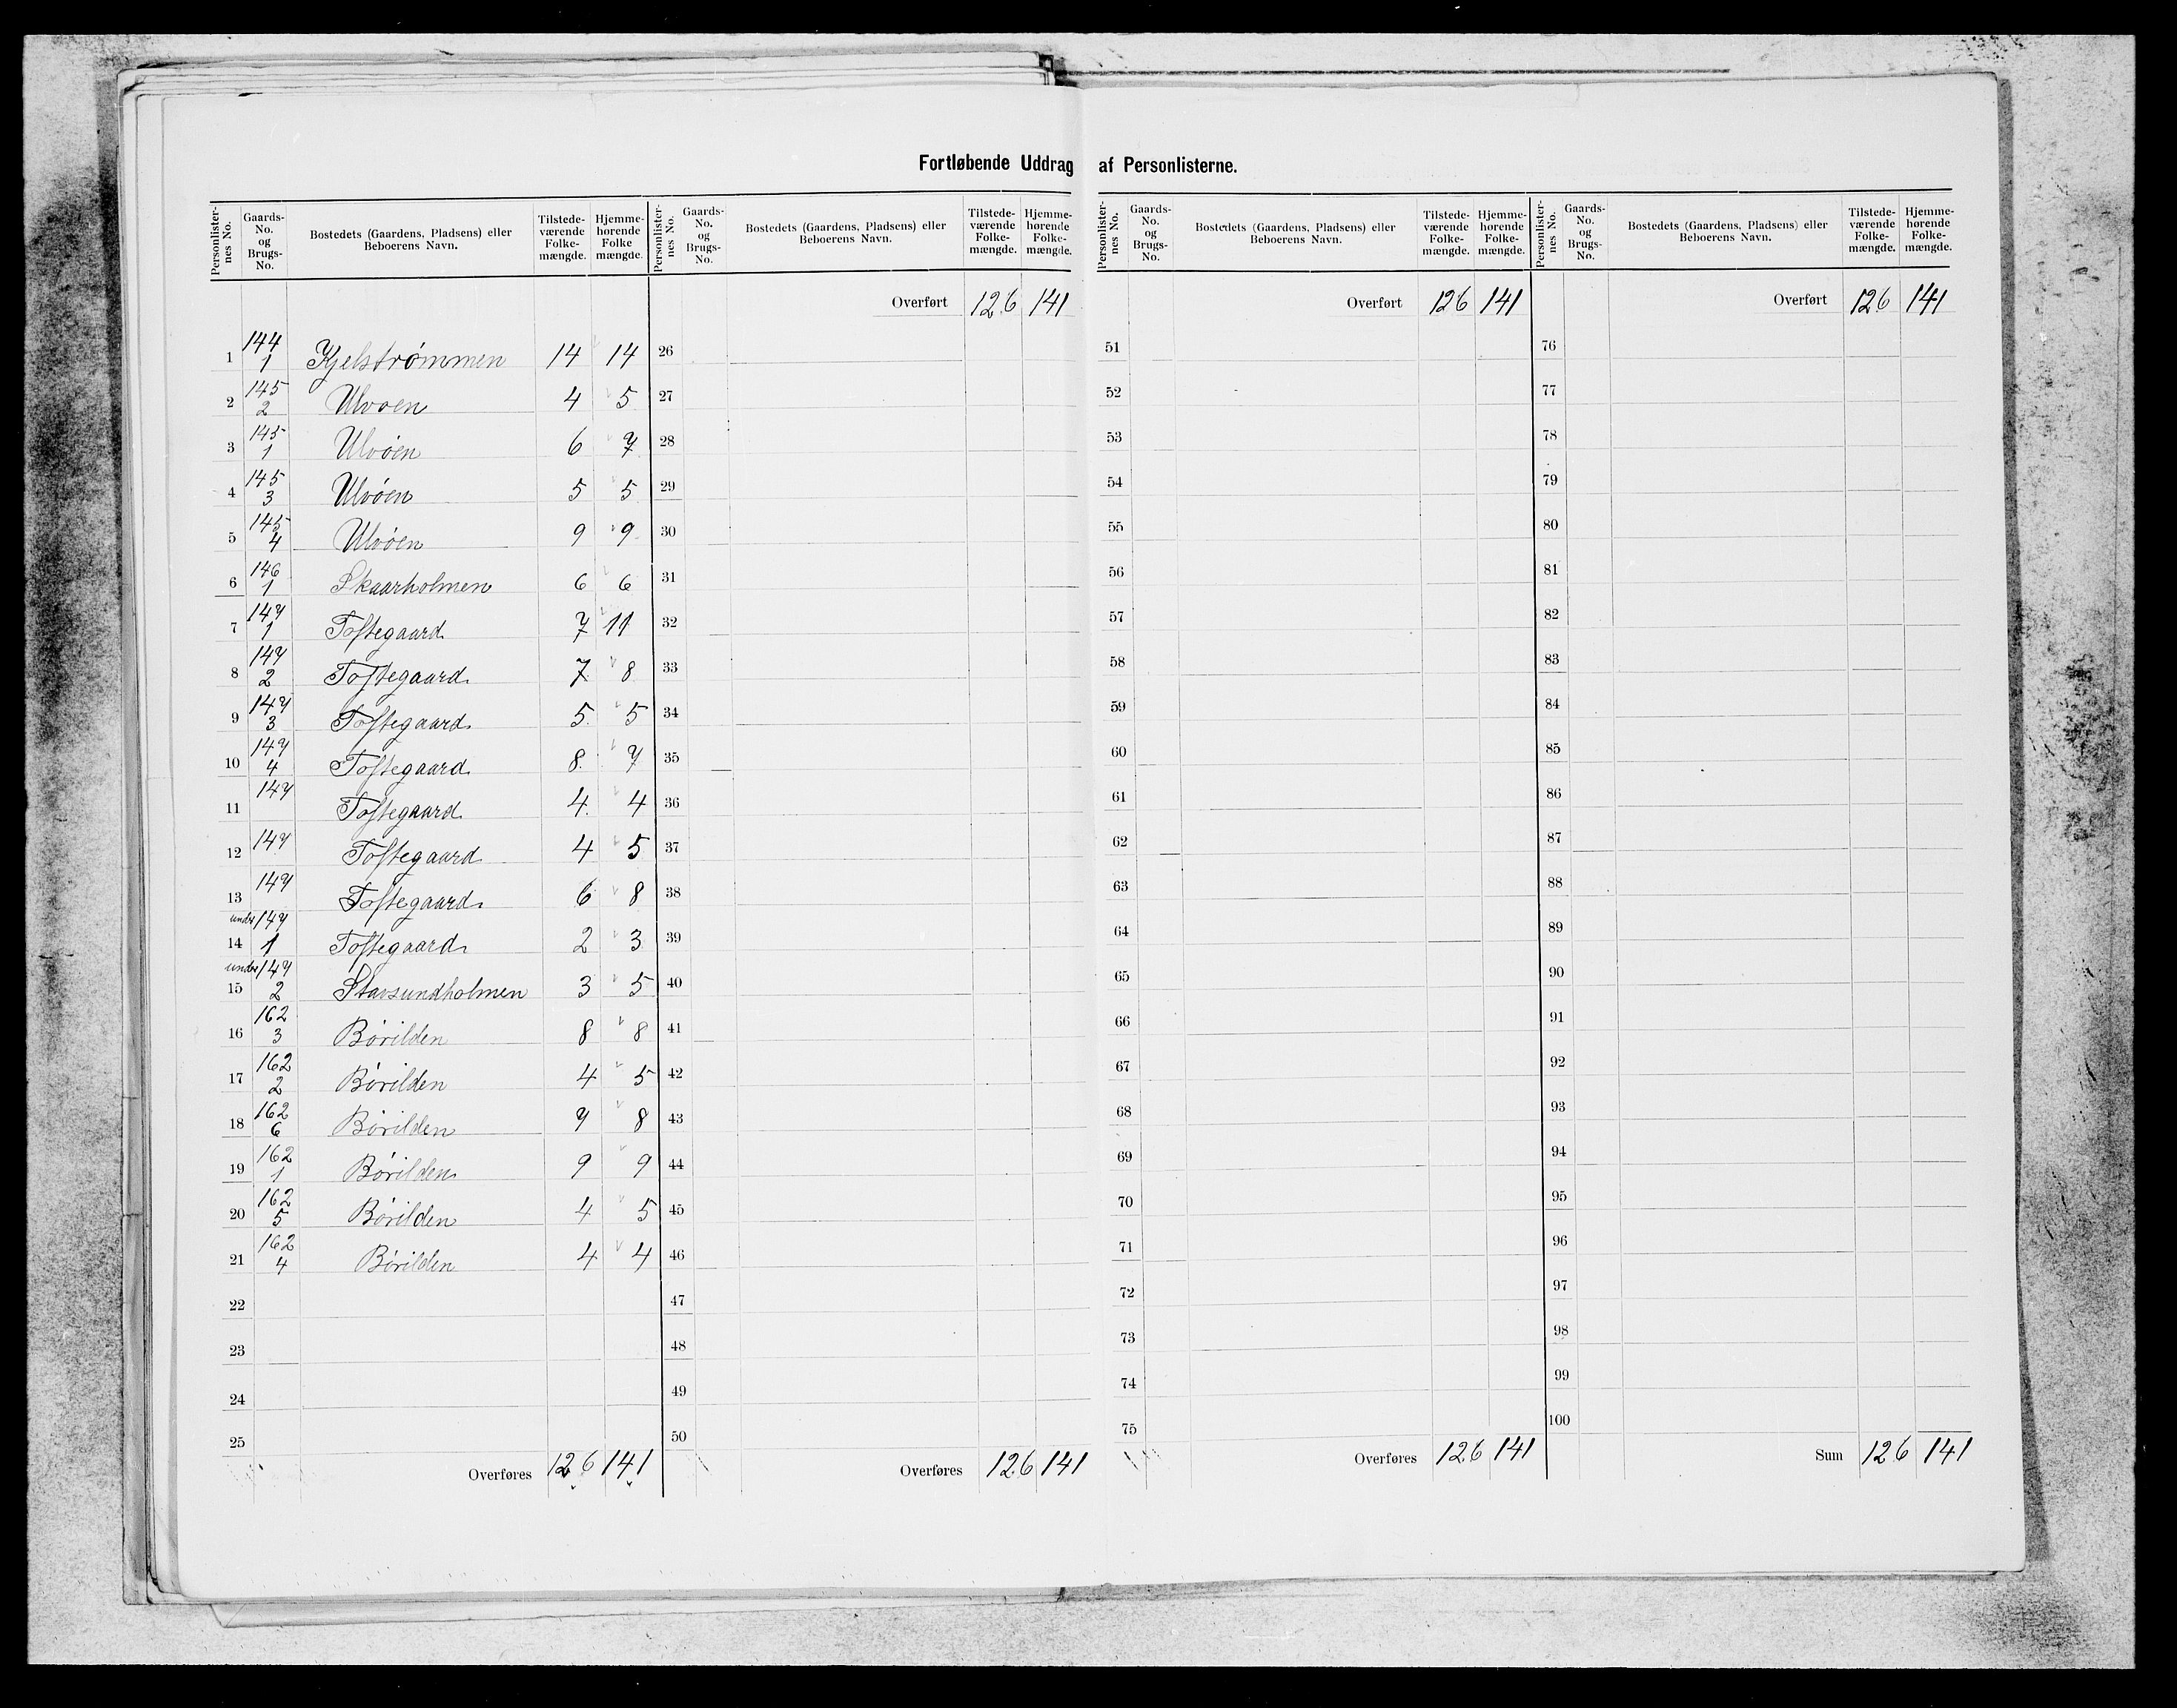 Fortløbende Uddrag af Personlisterne.
Personlisternes No. | Gaards-No. og Brugs-No. | Bostedets (Gaardens, Pladsens) eller Beboerens Navn. | Tilstedeværende Folkemængde. | Hjemmehørende Folke mængde.
1 | 144 1 | Kjelstrømmen | 14 | 14
2 | 145 2 | Ulvøen | 4 | 5
3 | 145 1 | Ulvøen | 6 | 7
4 | 145 3 | Ulvøen | 5 | 5
5 | 145 4 | Ulvøen | 9 | 9
6 | 146 1 | Skaarholmen | 6 | 6
7 | 147 1 | Toftegaard | 7 | 11
8 | 147 2 | Toftegaard | 7 | 8
9 | 147 3 | Toftegaard | 5 | 5
10 | 147 4 | Toftegaard | 8 | 7
11 | 147 | Toftegaard | 4 | 4
12 | 147 | Toftegaard | 4 | 5
13 | 147 | Toftegaard | 6 | 8
14 | under 147 1 | Toftegaard | 2 | 3
15 | under 147 2 | Stavsundholmen | 3 | 5
16 | 162 3 | Børilden | 8 | 8
17 | 162 2 | Børilden | 4 | 5
18 | 162 6 | Børilden | 7 | 8
19 | 162 1 | Børilden | 9 | 9
20 | 162 5 | Børilden | 4 | 5
21 | 162 4 | Børilden | 4 | 4
22
23
24
25
Overføres 126 141
Personlisternes No. | Gaards-No. og Brugs-No. | Bostedets (Gaardens, Pladsens) eller Beboerens Navn. | Tilstedeværende Folkemængde. | Hjemmehørende Folkemængde.
Overført 126 141
26
27
28
29
30
31
32
33
34
35
36
37
38
39
40
41
42
43
44
45
46
47
48
49
50
Overføres 126 141
Personlisternes No. | Gaards-No. og Brugs-No. | Bostedets (Gaardens, Pladsens) eller Beboerens Navn. | Tilstedeværende Folkemængde. | Hjemmehørende Folkemængde.
Overført 126 141
51
52
53
54
55
56
57
58
59
60
61
62
63
64
65
66
67
68
69
70
71
72
73
74
75
Overføres 126 141
Personlisternes No. | Gaards-No. og Brugs-No. | Bostedets (Gaardens, Pladsens) eller Beboerens Navn. | Tilstedeværende Folkemængde. | Hjemmehørende Folkemængde.
Overført 126 141
76
77
78
79
80
81
82
83
84
85
86
87
88
89
90
91
92
93
94
95
96
97
98
99
100
Sum 126 141